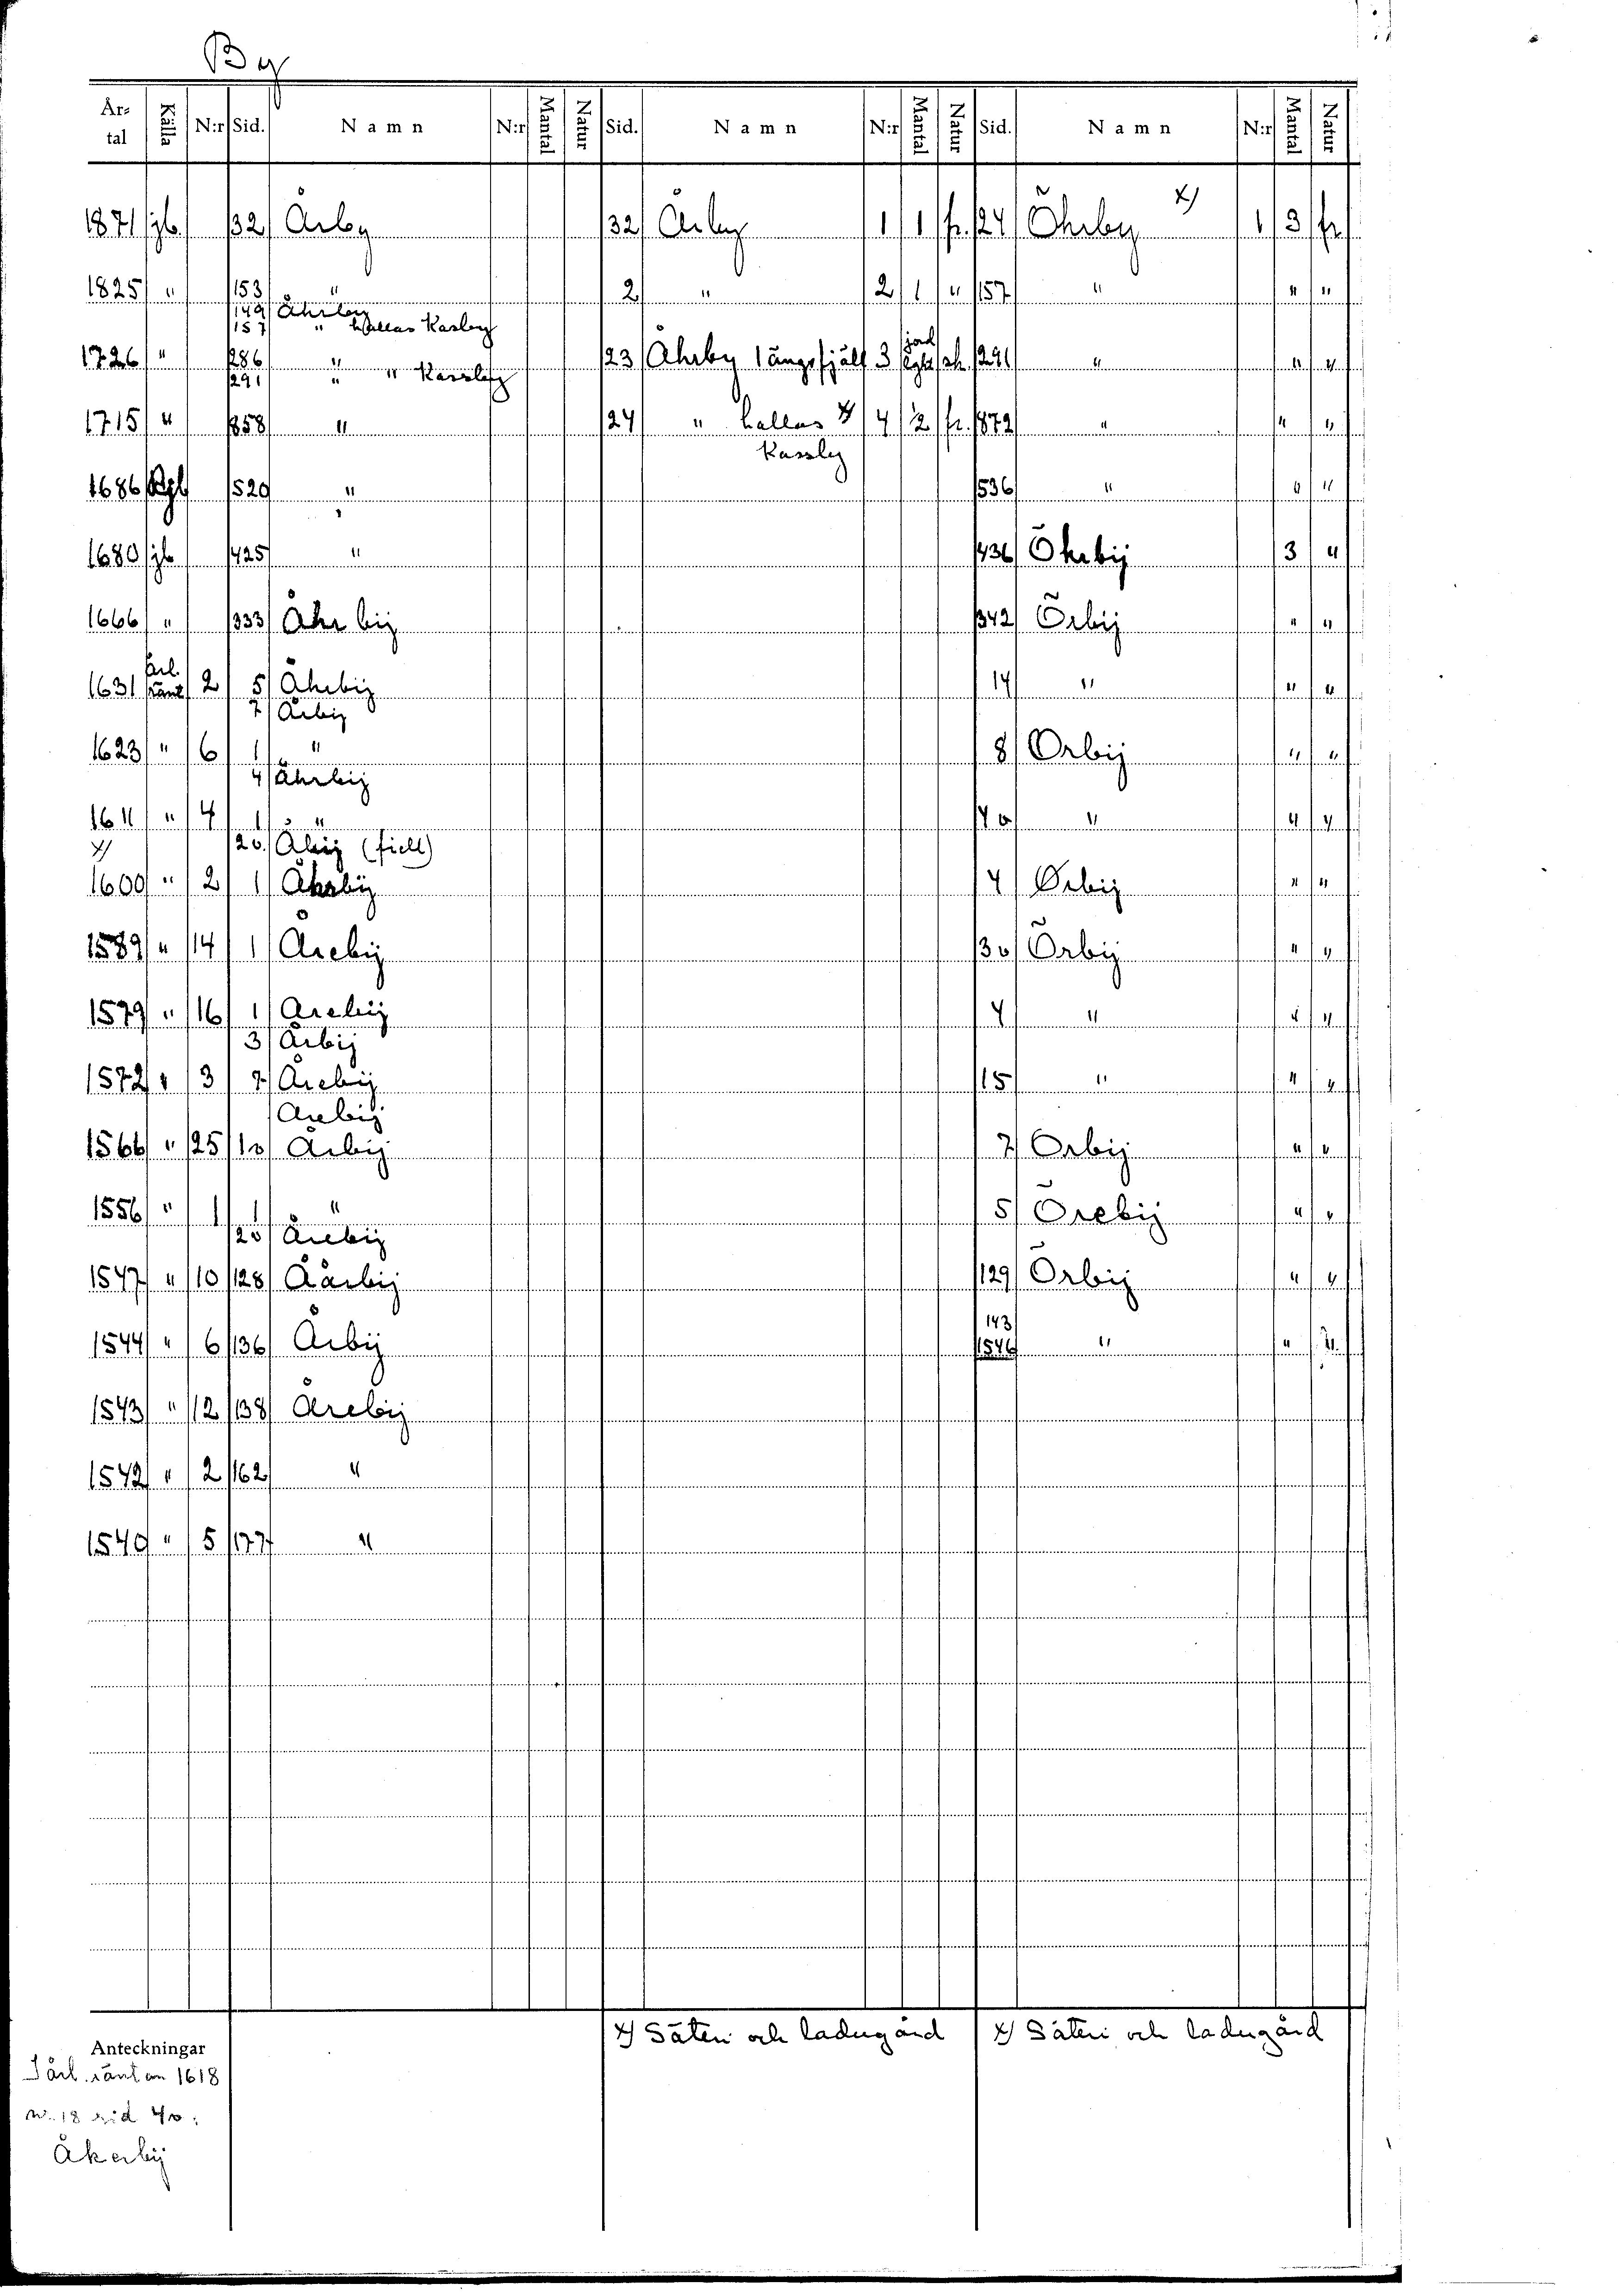 By
År-tal Källa N:r Sid. Namn N:r Mantal Natur Sid. Namn N:r Mantal Natur Sid. Namn N:r Mantal Natur
1871 jb. 32 Årby 32 Årby 1 1 fr. 24 Öhrby x) 1 3 fr
1825 " 153 " 2 " 2 1 " 157 " " "
149 Åhrby
157 " kallas Kasby
1726 " 286 " 23 Åhrby 1 ängsfjäll 3 jord lght sk. 291 " " "
291 " " Kassby
1715 " 858 " 24 " kallas x) 4 1/2 fr. 872 " " "
Kassby
1686 Rgl 520 " 536 " " "
1680 jb 425 " 436 Öhrbij 3 "
1666 " 333 Åhrbij 342 Örbij " "
1631 årl. ränt 2 5 Åhrbij 14 " " "
7 Årbij
1623 " 6 1 " 8 Orbij " "
4 Åhrbij
1611 " 4 1 " 40 " " "
x) 20. Åbij (fiell)
1600 " 2 1 Åhrbij 4 Ørbij " "
1589 " 14 1 Årebij 30 Örbij " "
1579 " 16 1 Arebij 4 " " "
3 Årbij
1572 " 3 7 Årebij 15 " " "
Arebij
1566 " 25 10 Årbij 7 Orbij " "
1556 " 1 1 " 5 Örebij " "
20 Årebij
1547 " 10 128 Åårbij 129 Örbij " "
143
1544 " 6 136 Årbij 1546 " " "
1543 " 12 138 Årebij
1542 " 2 162 "
1540 " 5 177 "
x) Säteri och ladugård x) Säteri och ladugård
Anteckningar
I årl. räntan 1618
nr. 18 sid 40:
Åkerbij